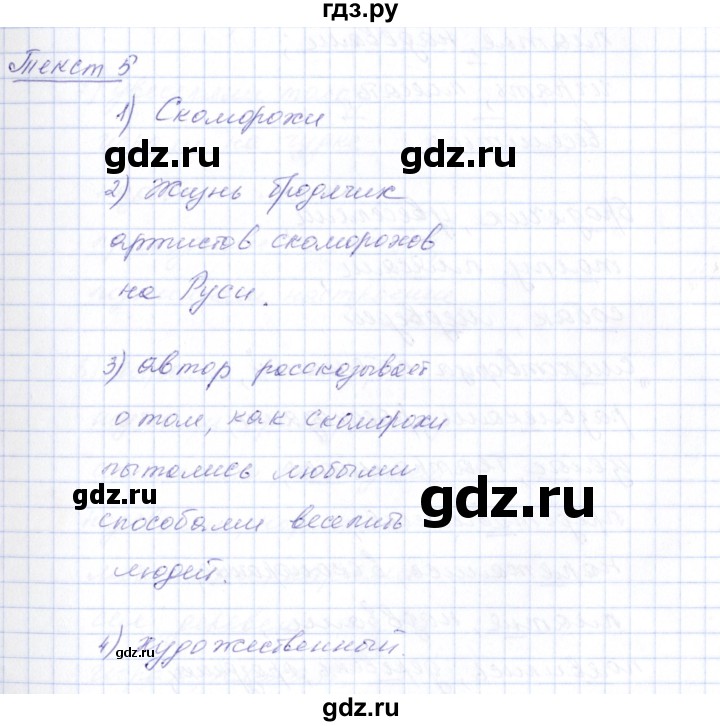 гдз.ру
Текст 5
1) Скоморохи
gdz.ru gdz.ru
2) Жизнь бродячих
артистов скоморохов
на Руси.
3) автор рассказывает
о том, как скоморохи
пытались любыми
gdz.ru gdz.ru
способами веселить
людей.
4) художественный.
gdz.ru gdz.ru
gdz.ru